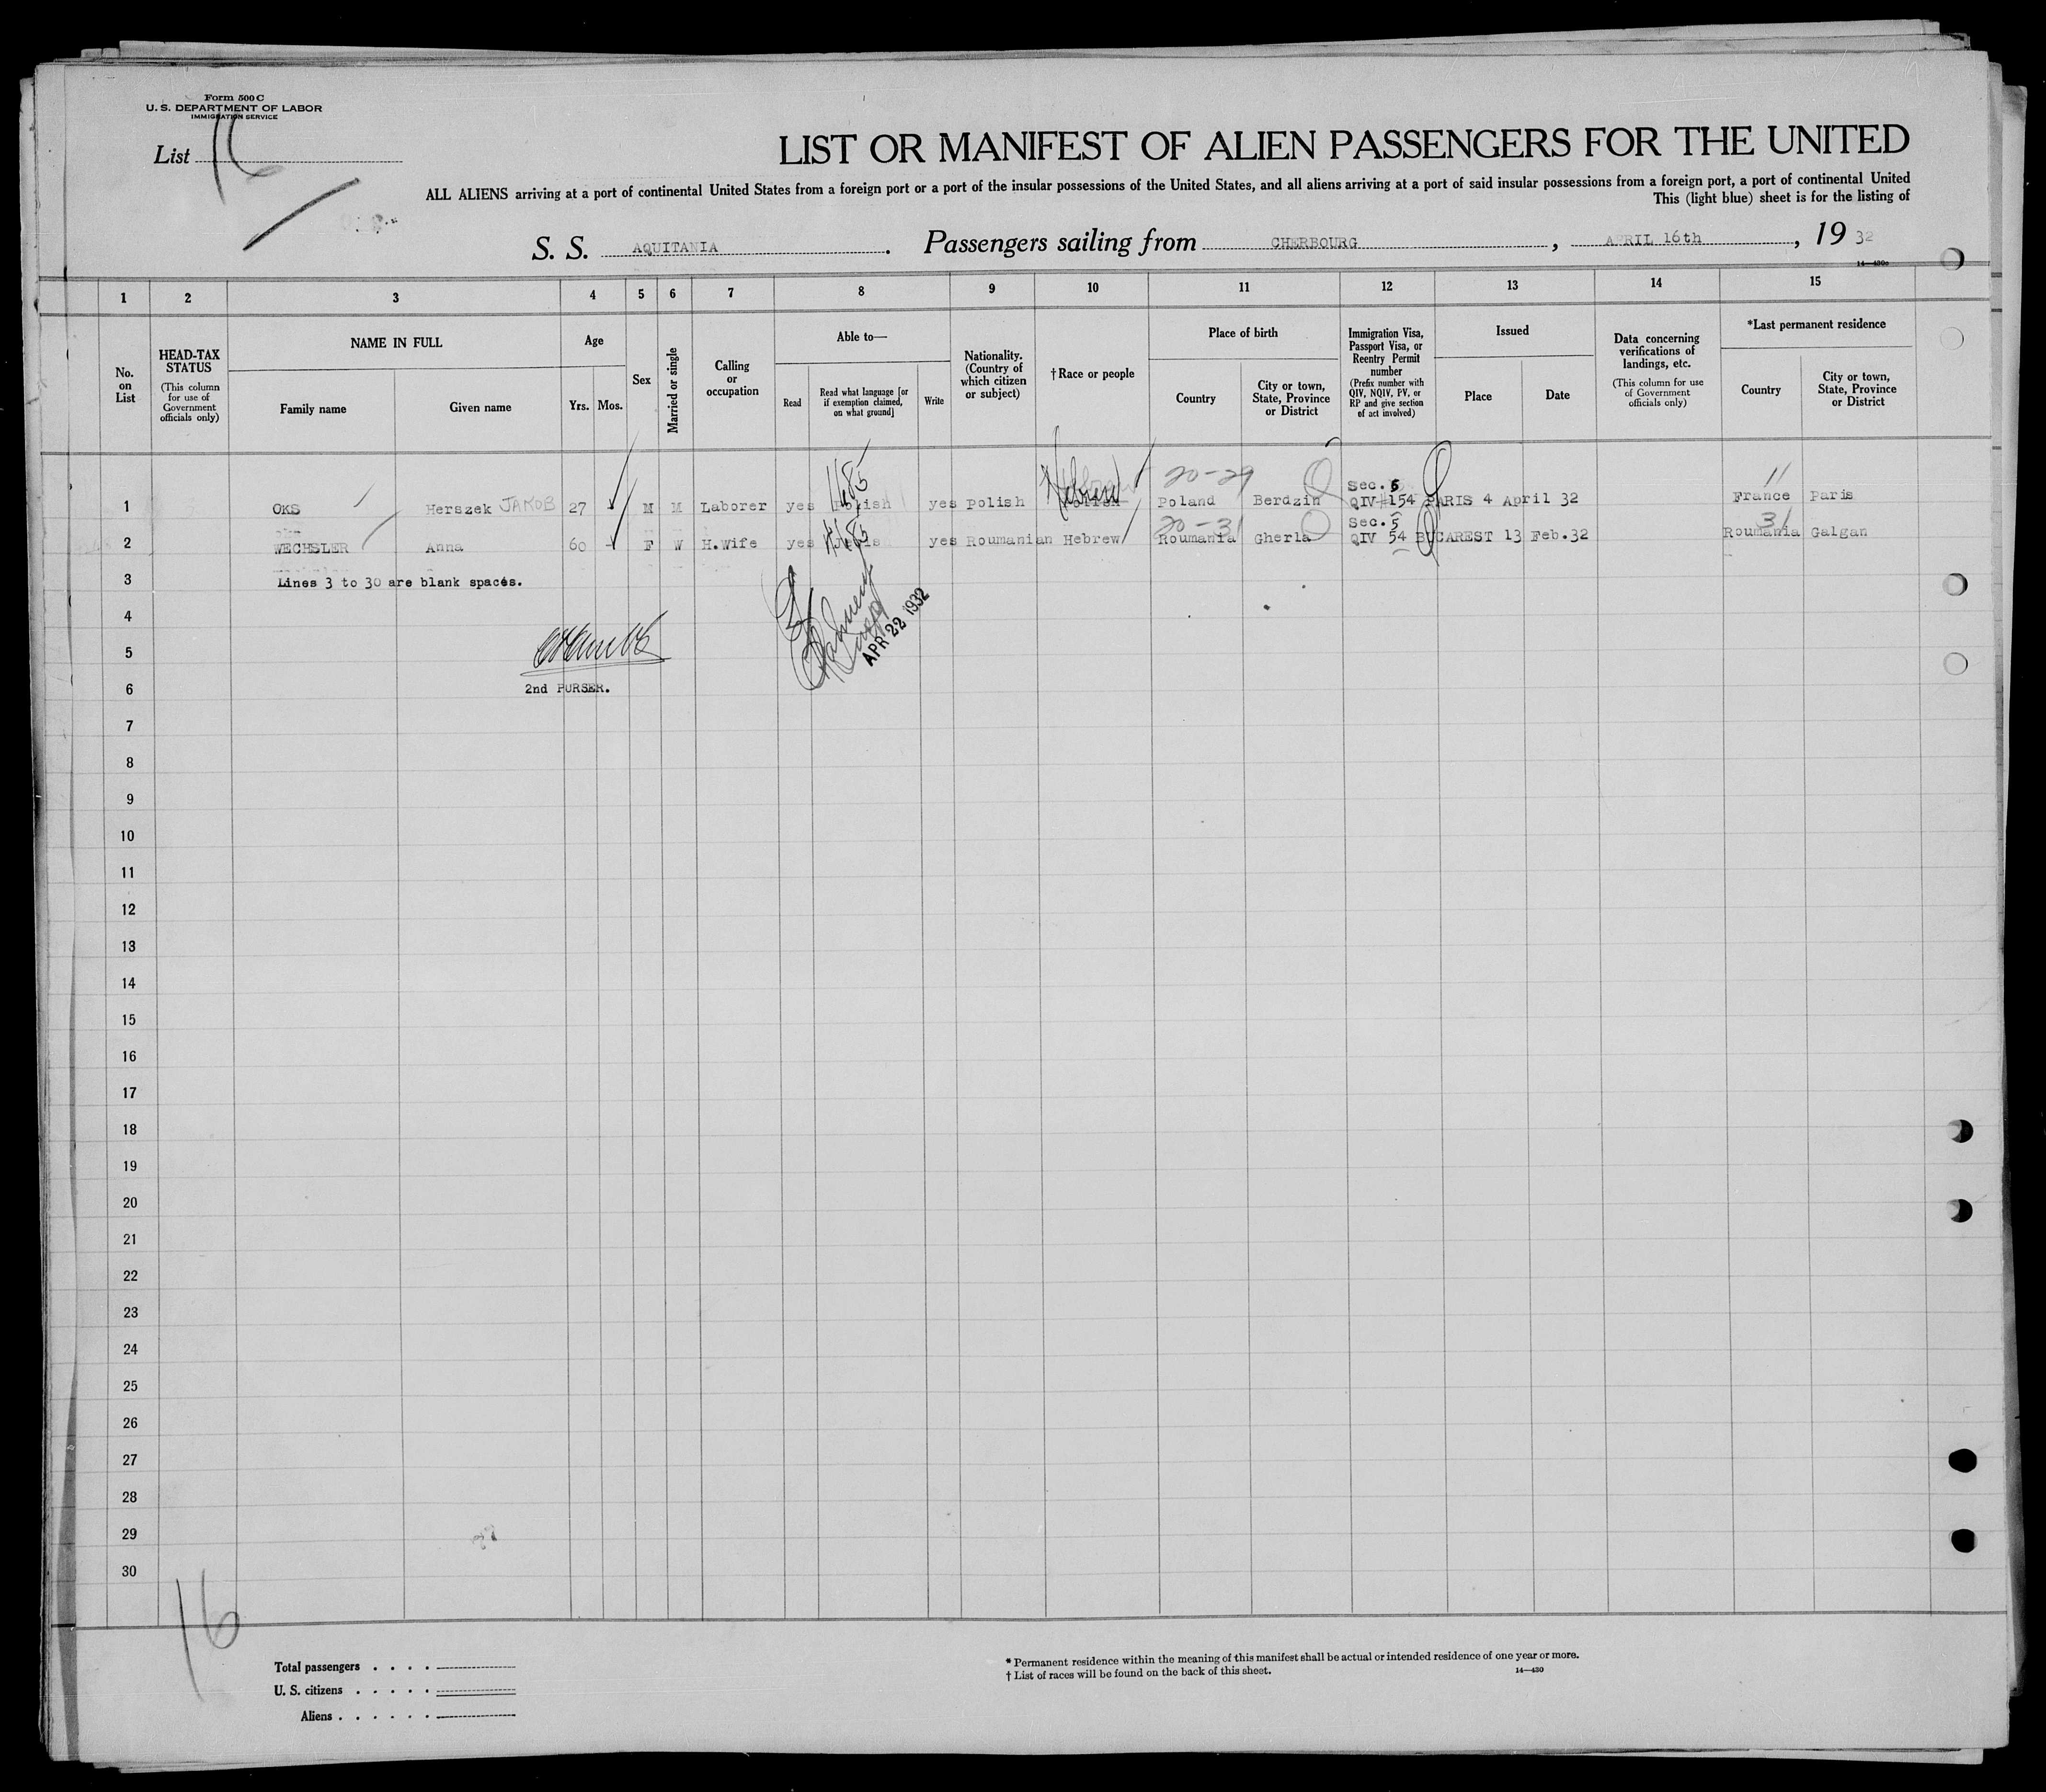 Form 500 C
U. S. DEPARTMENT OF LABOR
IMMIGRATION SERVICE
List 16
LIST OR MANIFEST OF ALIEN PASSENGERS FOR THE UNITED
ALL ALIENS arriving at a port of continental United States from a foreign port or a port of the insular possessions of the United States, and all aliens arriving at a port of said insular possessions from a foreign port, a port of continental United
This (light blue) sheet is for the listing of
S. S. AQUITANIA. Passengers sailing from CHERBOURG, APRIL 16th, 19 32
14—430c
1 2 3 4 5 6 7 8 9 10 11 12 13 14 15
No. on List
HEAD-TAX STATUS (This column for use of Government officials only)
NAME IN FULL
Family name Given name
Age
Yrs. Mos.
Sex
Married or single
Calling or occupation
Able to—
Read Read what language [or if exemption claimed, on what ground] Write
Nationality. (Country of which citizen or subject)
† Race or people
Place of birth
Country City or town, State, Province or District
Immigration Visa, Passport Visa, or Reentry Permit number (Prefix number with QIV, NQIV, PV, or RP and give section of act involved)
Issued
Place Date
Data concerning verifications of landings, etc. (This column for use of Government officials only)
*Last permanent residence
Country City or town, State, Province or District
20-29 Sec. 5 11
1 OKS Herszek JAKOB 27 M M Laborer yes Polish yes Polish Hebrew Poland Berdzin QIV #154 PARIS 4 April 32 France Paris
20-31 Sec. 5 31
2 WECHSLER Anna 60 F W H.Wife yes yes Roumanian Hebrew Roumania Gherla QIV 54 BUCAREST 13 Feb.32 Roumania Galgan
3 Lines 3 to 30 are blank spaces.
APR 22 1932
4
5
6 2nd PURSER.
7
8
9
10
11
12
13
14
15
16
17
18
19
20
21
22
23
24
25
26
27
28
29
30
16
Total passengers . . . .
U. S. citizens . . . . .
Aliens . . . . . .
* Permanent residence within the meaning of this manifest shall be actual or intended residence of one year or more.
† List of races will be found on the back of this sheet.
14—430